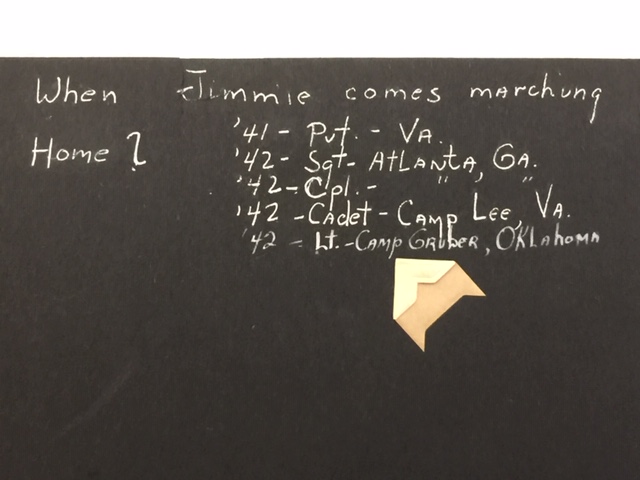 When Jimmie comes marching
Home?
'41 - Pvt. - VA.
'42 - Sgt - Atlanta, GA.
'42 - Cpl. - " "
'42 - Cadet - Camp Lee, Va.
'42 - Lt. - Camp Gruber, Oklahoma